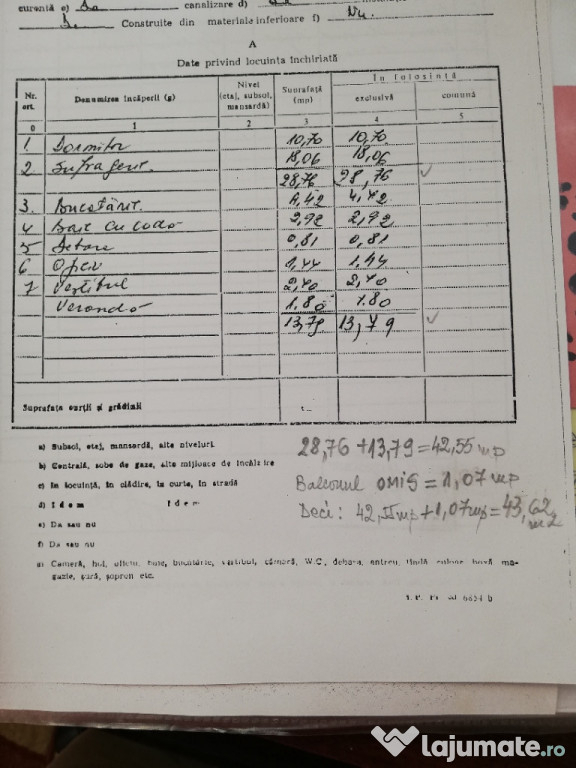 curentă e) Da canalizare d)
Da Construite din materiale inferioare f) Nu.
A
Date privind locuința închiriată
Nr. crt. Denumirea încăperii (g) Nivel (etaj, subsol, mansardă) Suprafața (mp) În folosință
exclusivă comună
0 1 2 3 4 5
1. Dormitor 10,70 10,70
2 Sufragerie. 18,06 18,06
28,76 28,76 ✓
3. Bucătărie. 4,42 4,42
4 Baie cu cada 2,92 2,92
5 0,81 0,81
6 1,44 1,44
7 Vestibul 2,40 2,40
Verandă 1,80 1.80
13,79 13,79 ✓
Suprafața curții și grădinii
a) Subsol, etaj, mansardă, alte niveluri
b) Centrală, sobe de gaze, alte mijloace de încălzire
c) În locuință, în clădire, în curte, în stradă
d) Idem Idem
e) Da sau nu
f) Da sau nu
g) Cameră, hol, oficiu, baie, bucătărie, vestibul, cămară, W.C., debara, antreu, tindă boxă magazie, șură, șopron etc.
28,76 + 13,79 = 42,55 mp
Balconul OMIS = 1,07 mp
Deci: 42,55 mp + 1,07 mp = 43,62 m2
6654 b
lajumate.ro